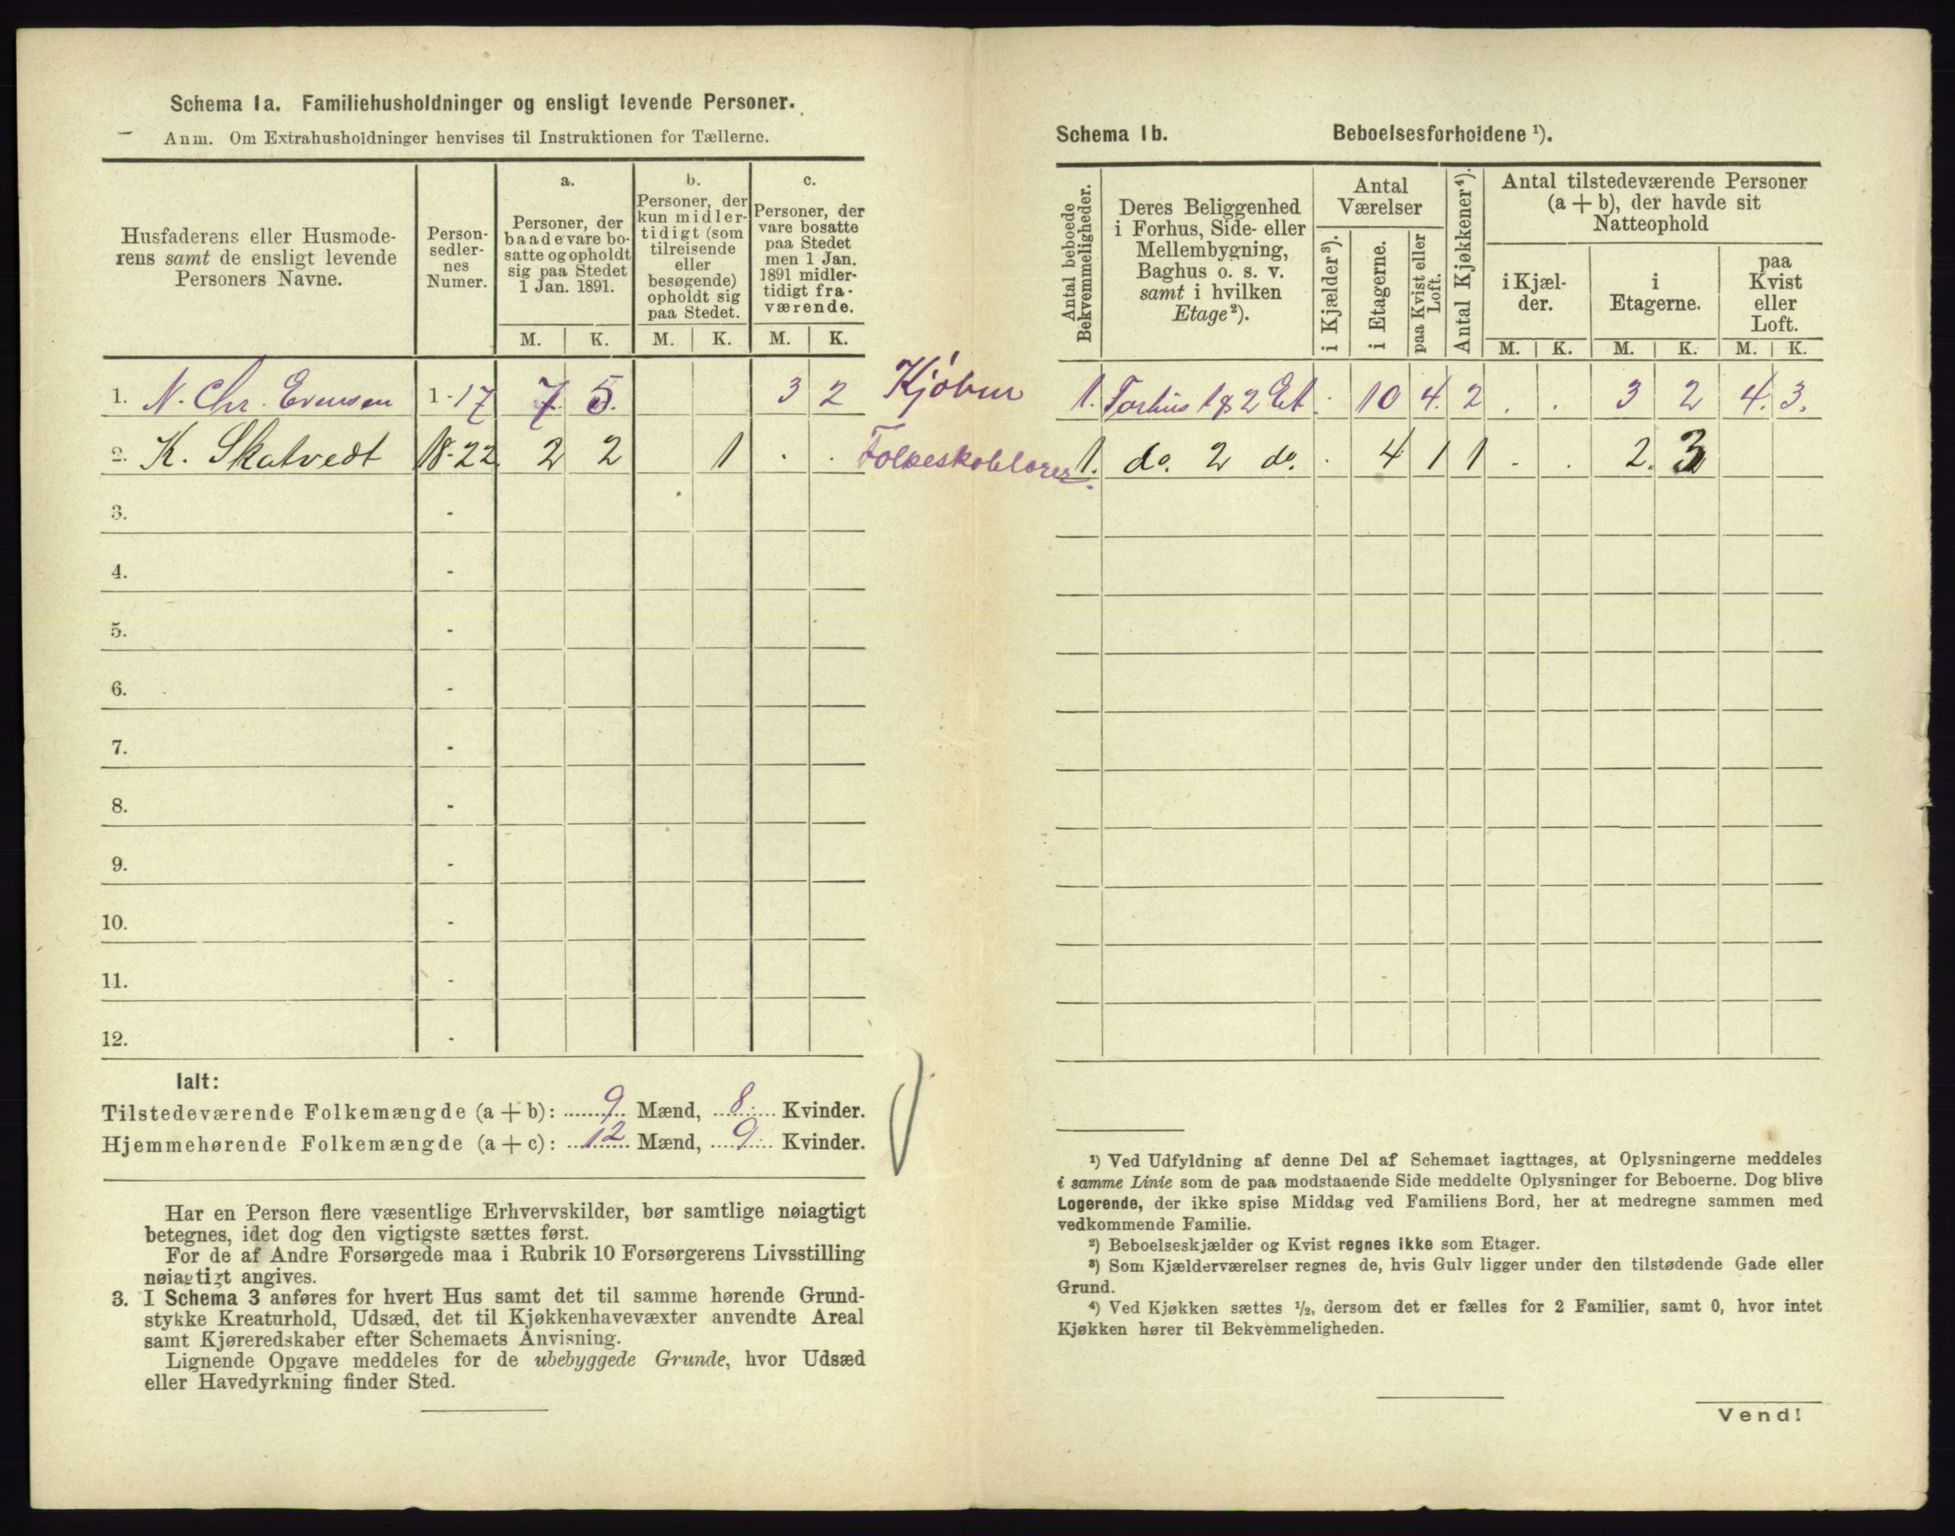 Schema 1a. Familiehusholdninger og ensligt levende Personer.
Anm. Om Extrahusholdninger henvises til Instruktionen for Tællerne.
Husfaderens eller Husmode-
rens samt de ensligt levende
Personers Navne.
Person-
sedler-
nes
Numer.
a.
Personer, der
baade vare bo-
satte og opholdt
sig paa Stedet
1 Jan. 1891.
b.
Personer, der
kun midler-
tidigt (som
tilreisende
eller
besøgende)
opholdt sig
paa Stedet.
c.
Personer, der
vare bosatte
paa Stedet
men 1 Jan.
1891 midler-
tidigt fra-
værende.
M. K. M. K. M. K.
1. N. Chr. Evensen 1-17 7. 5. 3 2 Kjøbm
2. K. Skatvedt 18-22 2 2 1 . . Folkeskolelærer.
3. -
4. -
5. -
6. -
7. -
8. -
9. -
10. -
11. -
12. -
Ialt:
Tilstedeværende Folkemængde (a + b): 9 Mænd, 8 Kvinder.
Hjemmehørende Folkemængde (a + c): 12 Mænd, 9 Kvinder.
Har en Person flere væsentlige Erhvervskilder, bør samtlige nøiagtigt
betegnes, idet dog den vigtigste sættes først.
For de af Andre Forsørgede maa i Rubrik 10 Forsørgerens Livsstilling
nøiagtigt angives.
3. I Schema 3 anføres for hvert Hus samt det til samme hørende Grund-
stykke Kreaturhold, Udsæd, det til Kjøkkenhavevæxter anvendte Areal
samt Kjøreredskaber efter Schemaets Anvisning.
Lignende Opgave meddeles for de ubebyggede Grunde, hvor Udsæd
eller Havedyrkning finder Sted.
Schema 1b. Beboelsesforholdene ¹).
Antal beboede
Bekvemmeligheder.
Deres Beliggenhed
i Forhus, Side- eller
Mellembygning,
Baghus o. s. v.
samt i hvilken
Etage²).
Antal
Værelser
i Kjælder³).
i Etagerne.
paa Kvist eller
Loft.
Antal Kjøkkener⁴).
Antal tilstedeværende Personer
(a + b), der havde sit
Natteophold
i Kjæl-
der.
i
Etagerne.
paa
Kvist
eller
Loft.
M. K. M. K. M. K.
1. Forhus 1 & 2 Et . 10 4. 2 . . 3 2 4. 3.
1. do. 2 do. . 4 1 1 . . 2. 3
¹) Ved Udfyldning af denne Del af Schemaet iagttages, at Oplysningerne meddeles
i samme Linie som de paa modstaaende Side meddelte Oplysninger for Beboerne. Dog blive
Logerende, der ikke spise Middag ved Familiens Bord, her at medregne sammen med
vedkommende Familie.
²) Beboelseskjælder og Kvist regnes ikke som Etager.
³) Som Kjælderværelser regnes de, hvis Gulv ligger under den tilstødende Gade eller
Grund.
⁴) Ved Kjøkken sættes ½, dersom det er fælles for 2 Familier, samt 0, hvor intet
Kjøkken hører til Bekvemmeligheden.
Vend!